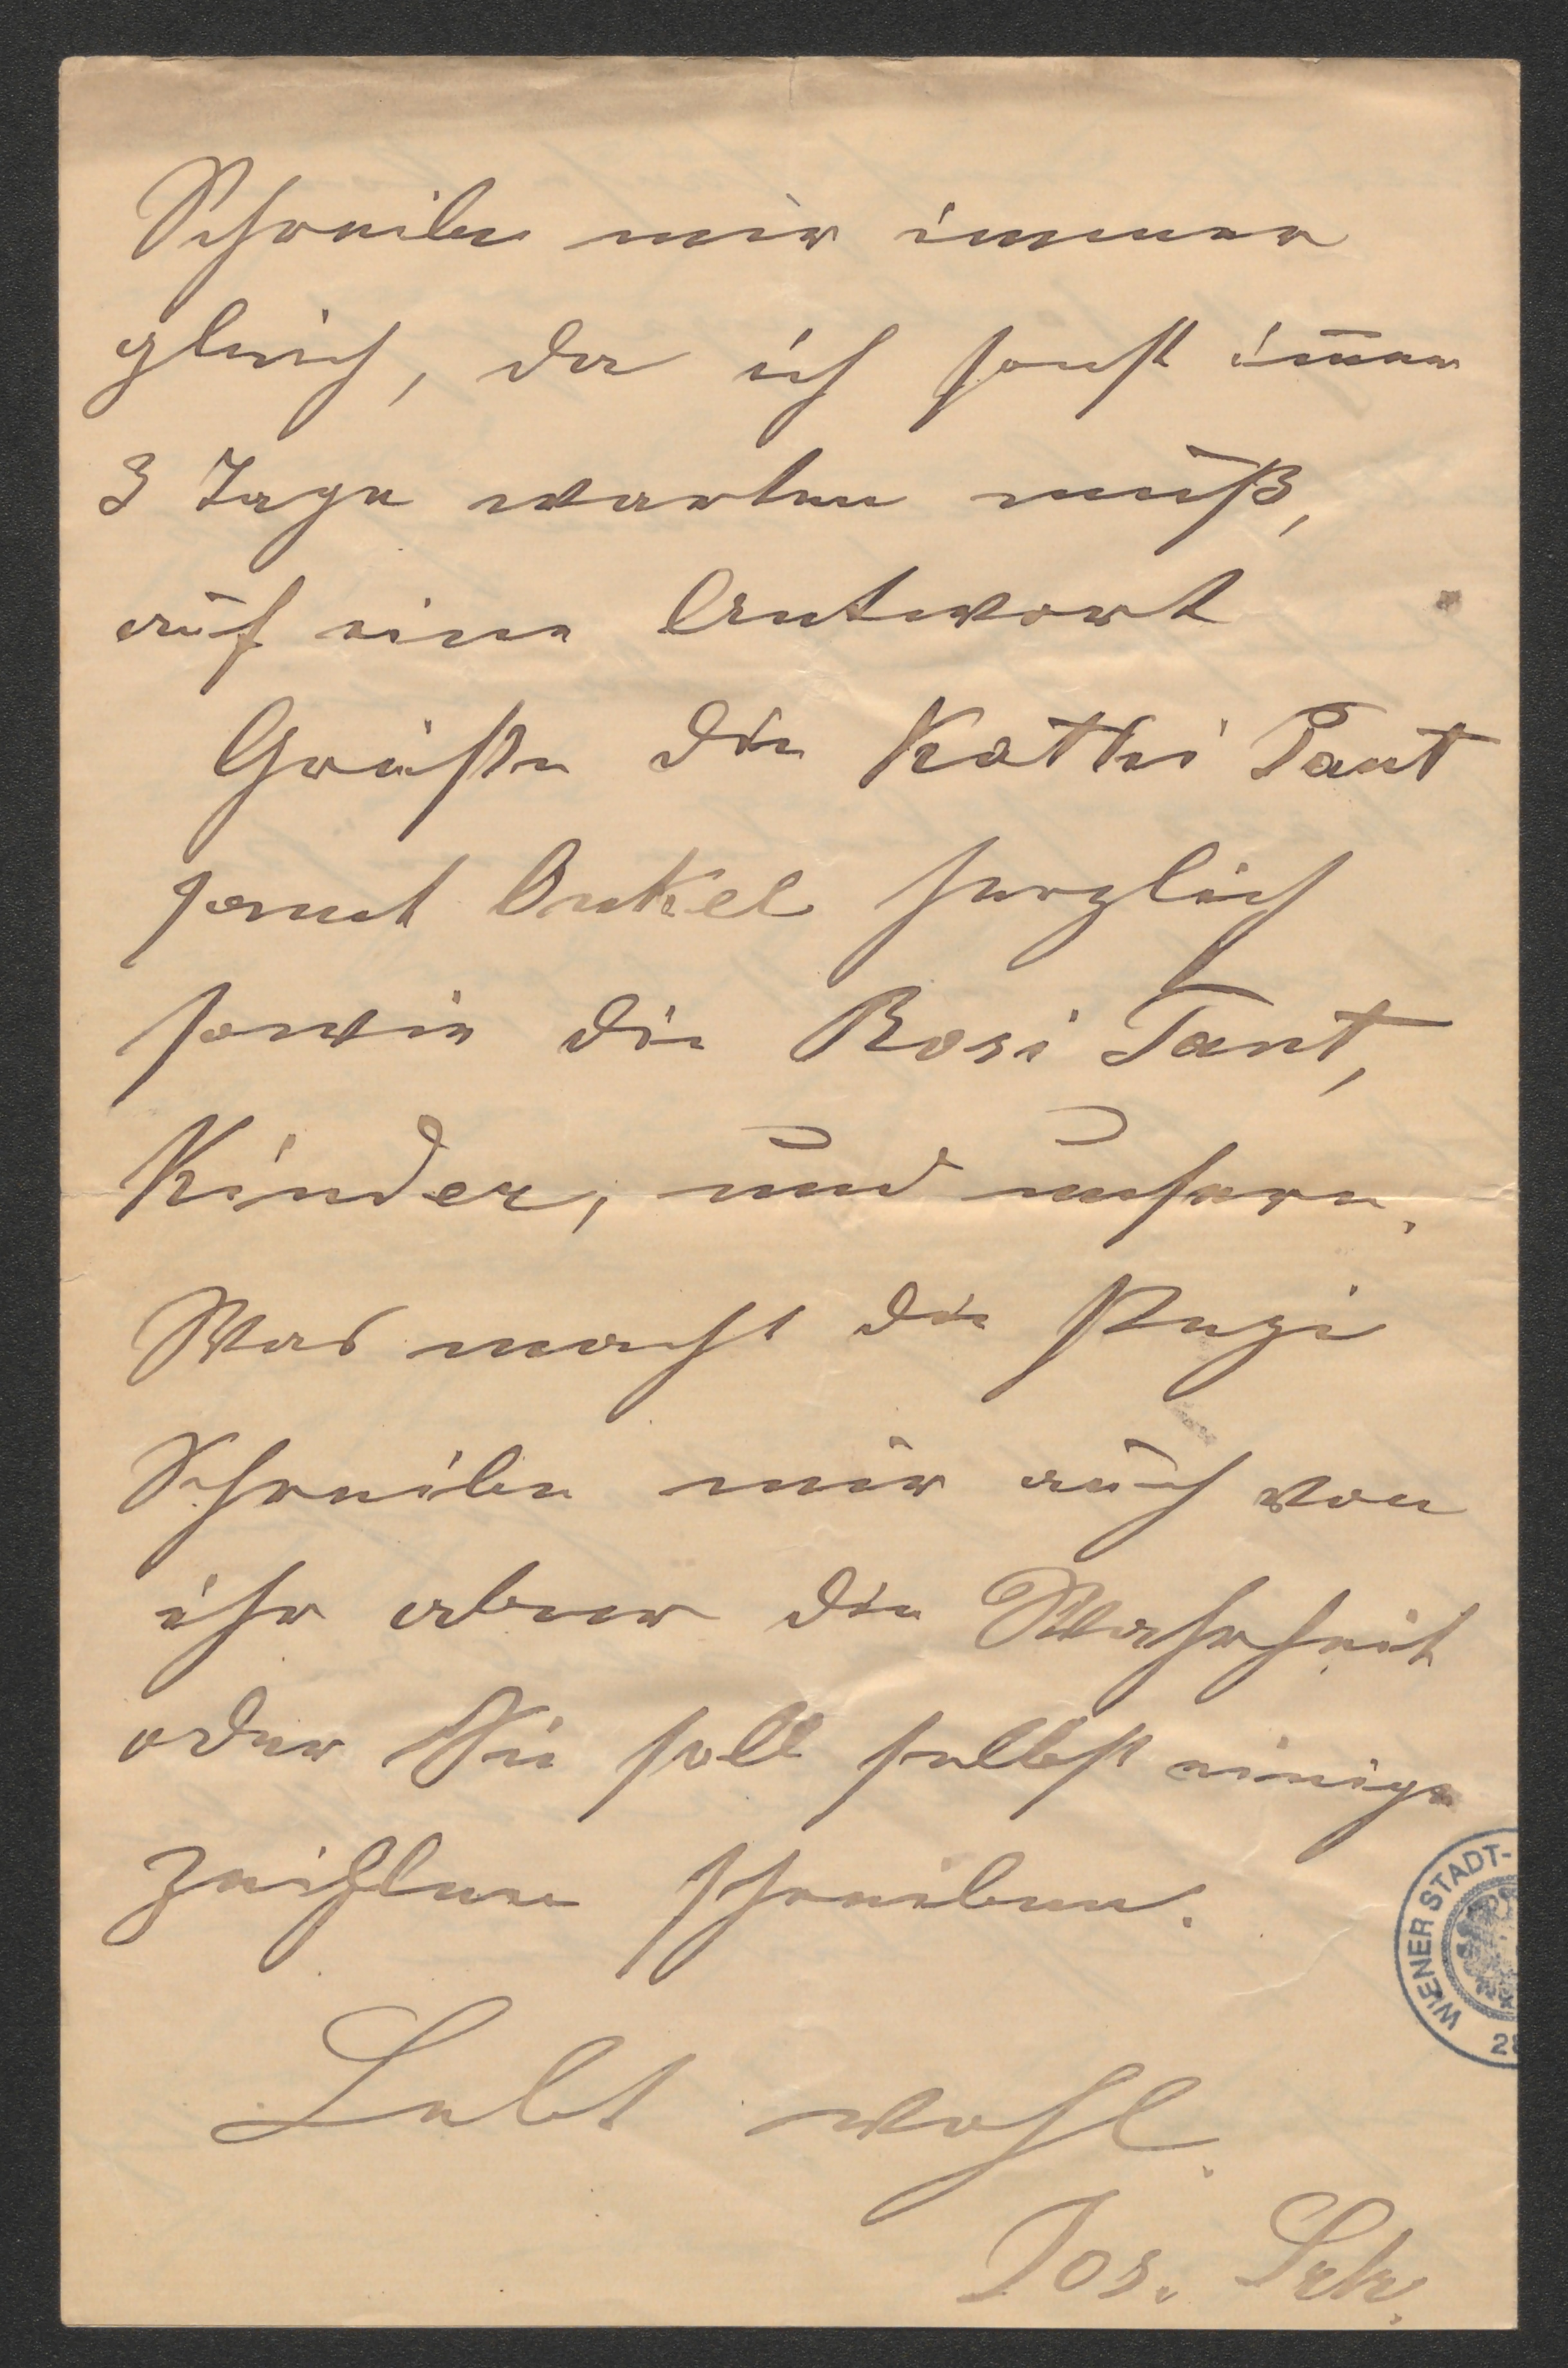 Schreibe mir immer
gleich, da ich sonst im̅er
3 Tage warten muß,
auf eine Antwort
Grüße die Kathi Tant
samt Onkel herzlich
sowie die Rosi Tant,
Kinder, und unsern.
Was macht die
Schreibe mir auch von
ihr aber die Wahrheit
oder Sie soll selbst einige
Zeihlen schreiben.
Lebt wohl.
Jos. Sch.
WIENER STADT-